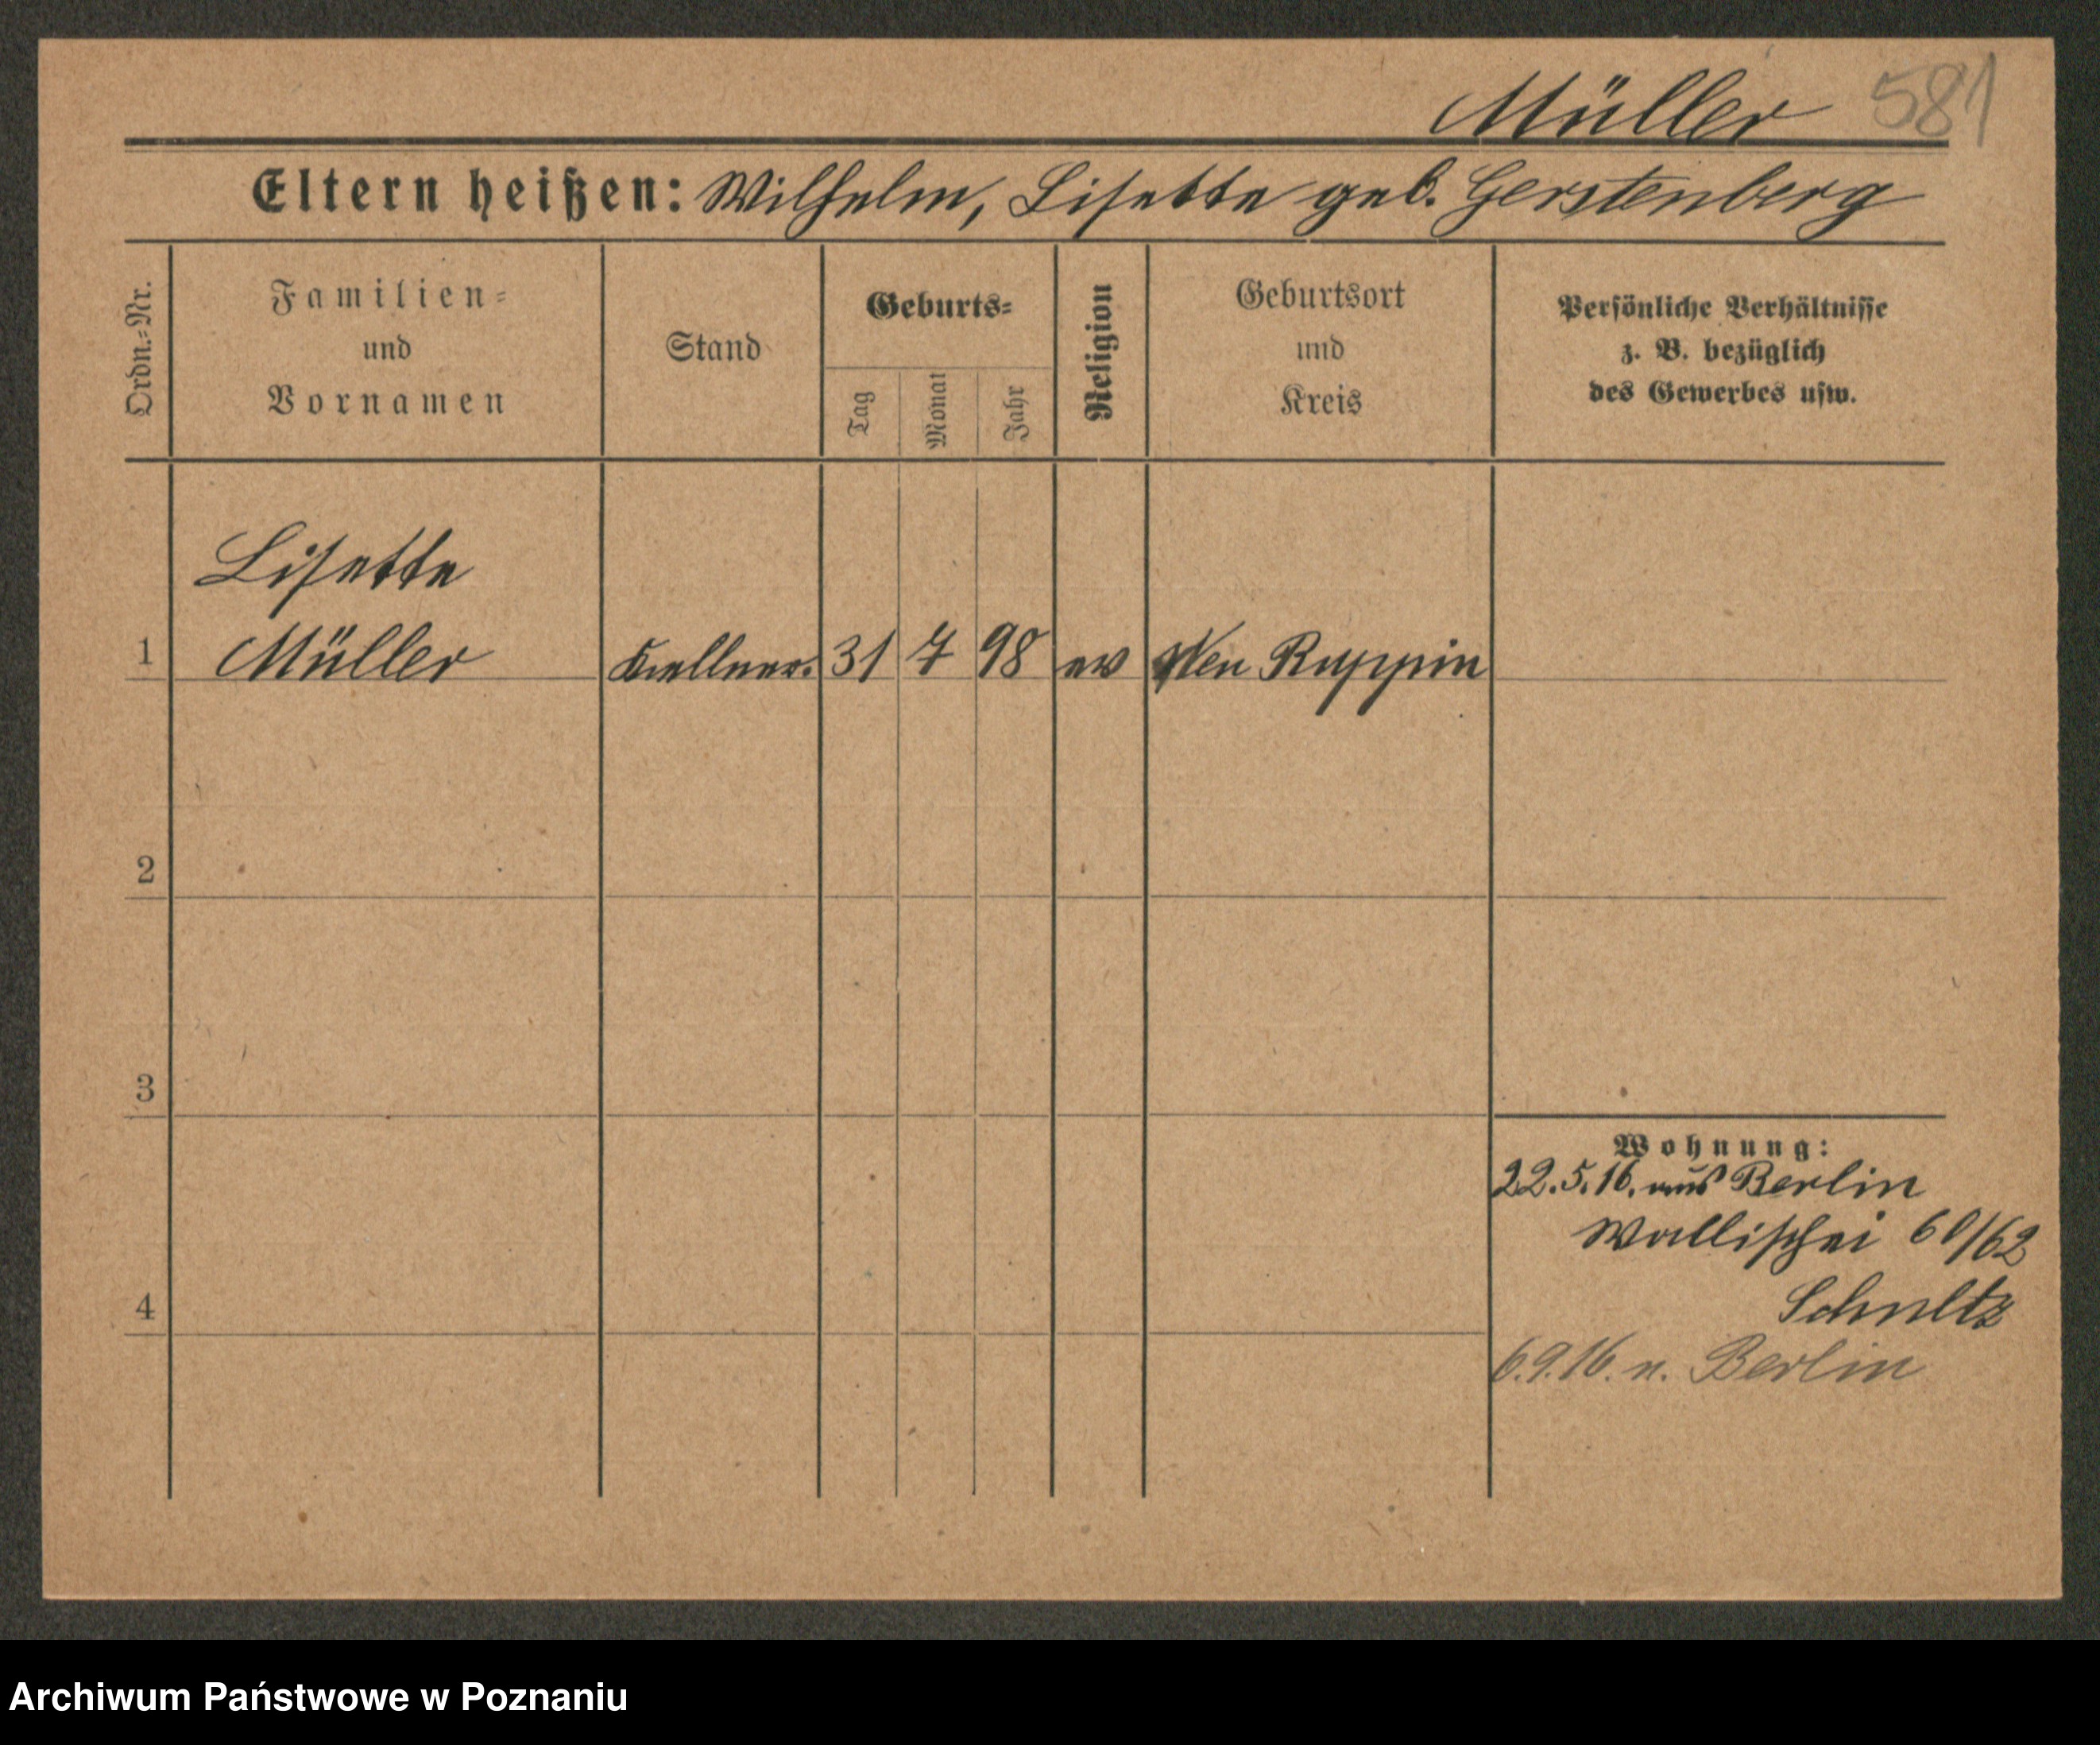 Müller 581
Eltern heißen: Wilhelm, Lisette geb. Gerstenberg
Ordn.=Nr.
Familien=
und
Vornamen
Stand
Geburts=
Tag
Monat
Jahr
Religion
Geburtsort
und
Kreis
Persönliche Verhältnisse
z. B. bezüglich
des Gewerbes usw.
Lisette
1 Müller Kellner. 31 7 98 ev Neu Ruppin
2
3
Wohnung:
22.5.16. aus Berlin
Wallischei 61/62
4 Schultz
6.9.16. n. Berlin
Archiwum Państwowe w Poznaniu